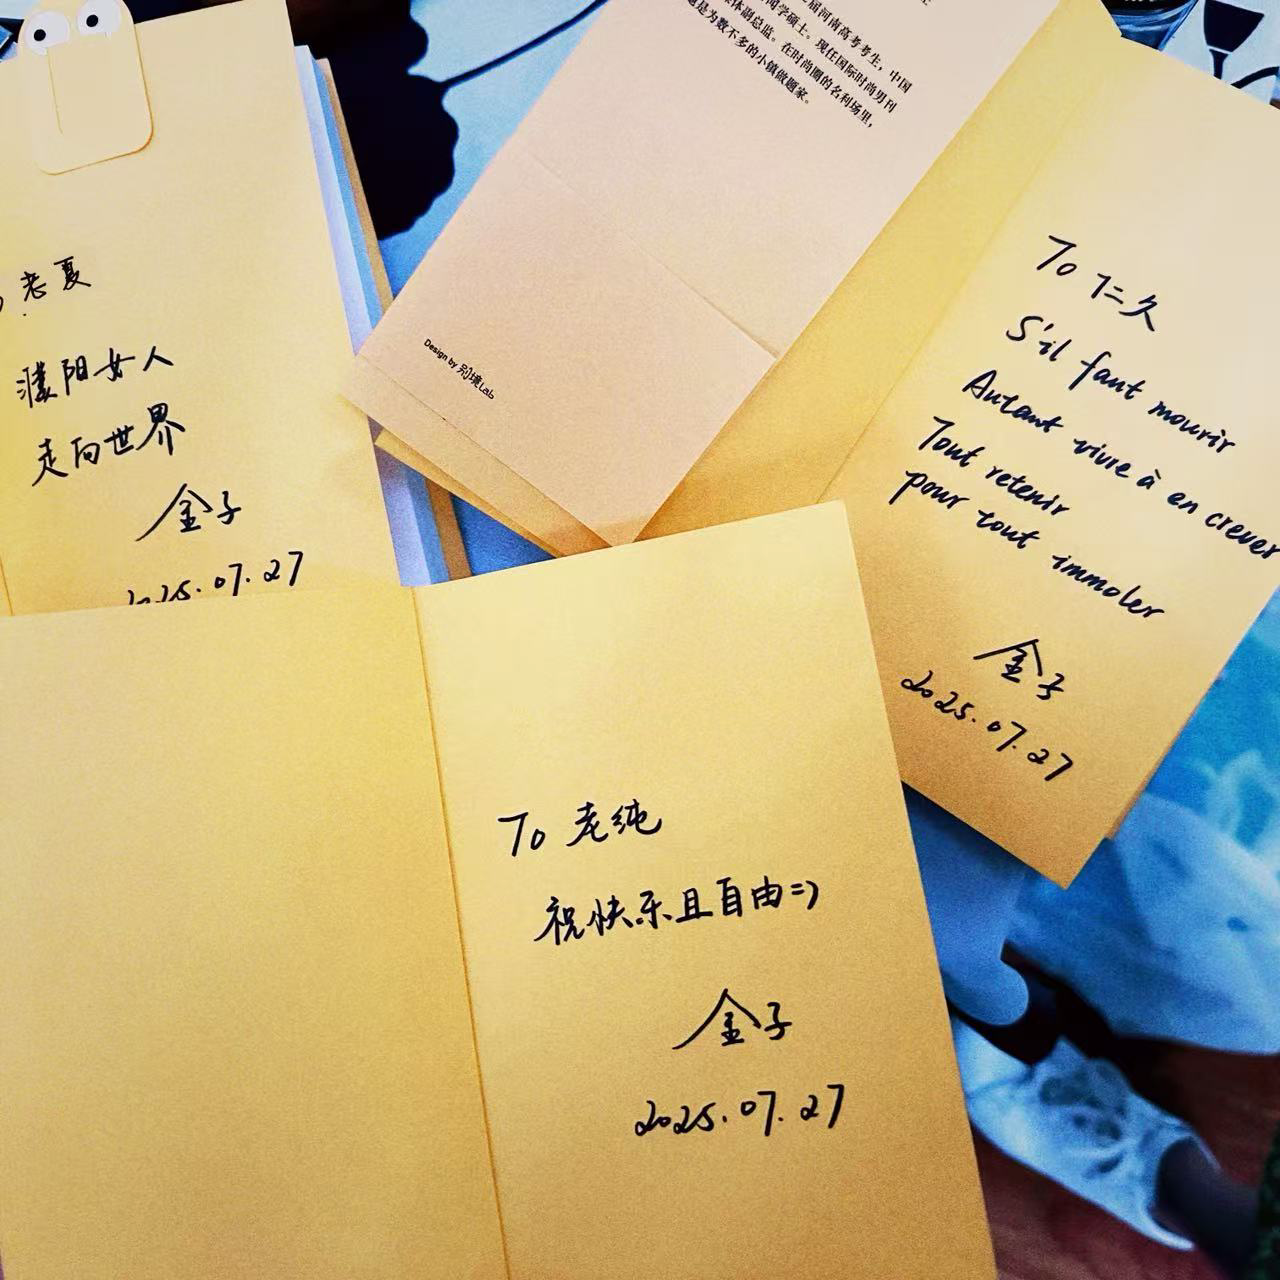 老夏
濮阳女人
走向世界
金子
2025.07.27
届河南高考考生，中国
闻学硕士。现任国际时尚男刊
体副总监。在时尚圈的名利场里，
是为数不多的小镇做题家。
Design by 别境Lab
To 仁久
S'il faut mourir
Autant vivre à en crever
Tout retenir
pour tout immoler
金子
2025.07.27
To 老纯
祝快乐且自由=)
金子
2025.07.27